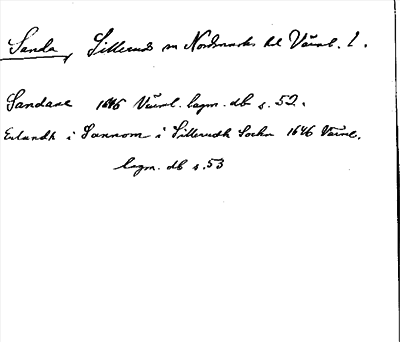 Sanda, Sillerud sn Nordmarks hd Värml. l.
Sandane 1646 Värml. lagm. db s. 52.
Erlandh i Sannom i Sillerudh Sochn 1646 Värml.
lagm. db s. 53